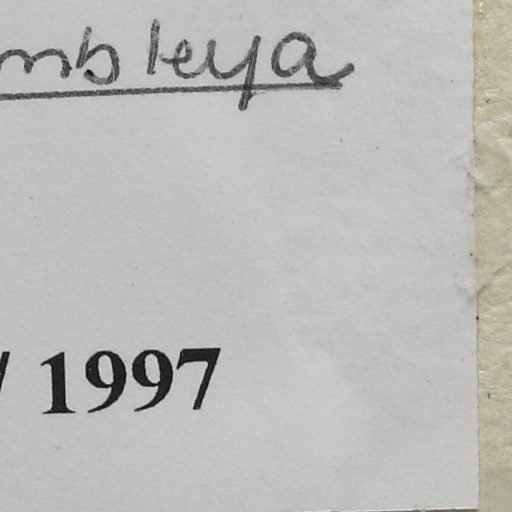 mbleya
/ 1997